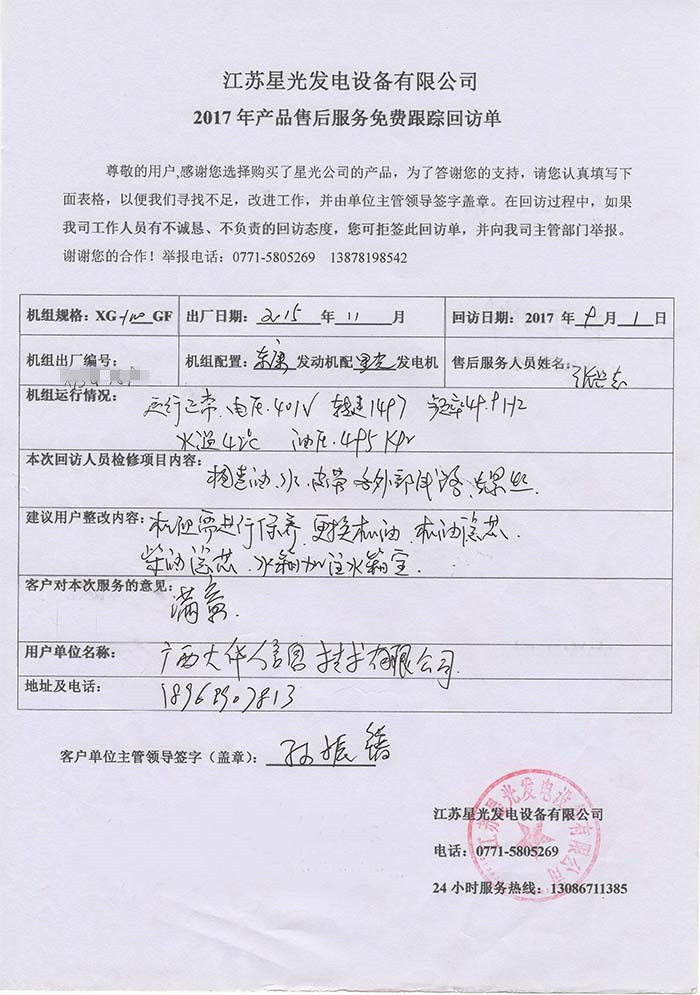 江苏星光发电设备有限公司
2017 年产品售后服务免费跟踪回访单
尊敬的用户,感谢您选择购买了星光公司的产品，为了答谢您的支持，请您认真填写下
面表格，以便我们寻找不足，改进工作，并由单位主管领导签字盖章。在回访过程中，如果
我司工作人员有不诚恳、不负责的回访态度，您可拒签此回访单，并向我司主管部门举报。
谢谢您的合作！举报电话：0771-5805269 13878198542
机组规格：XG-100GF 出厂日期：2015 年 11 月 回访日期：2017 年 9 月 1 日
机组出厂编号： 机组配置：东康 发动机配 星光 发电机 售后服务人员姓名：
机组运行情况：
运行正常.电压.401V 转速1497 频率49.9HZ
水温 油压.495 Kpa
本次回访人员检修项目内容：
检查油.水.皮带 各外部线路、螺丝.
建议用户整改内容：
机组需进行保养.更换机油.机油滤芯.
柴油滤芯.水箱加注水箱宝.
客户对本次服务的意见：
满意
用户单位名称：
广西大华信息技术有限公司.
地址及电话：
18968907813
客户单位主管领导签字（盖章）： 孙振
江苏星光发电设备有限公司
电话：0771-5805269
24 小时服务热线：13086711385
江苏星光发电设备有限公司